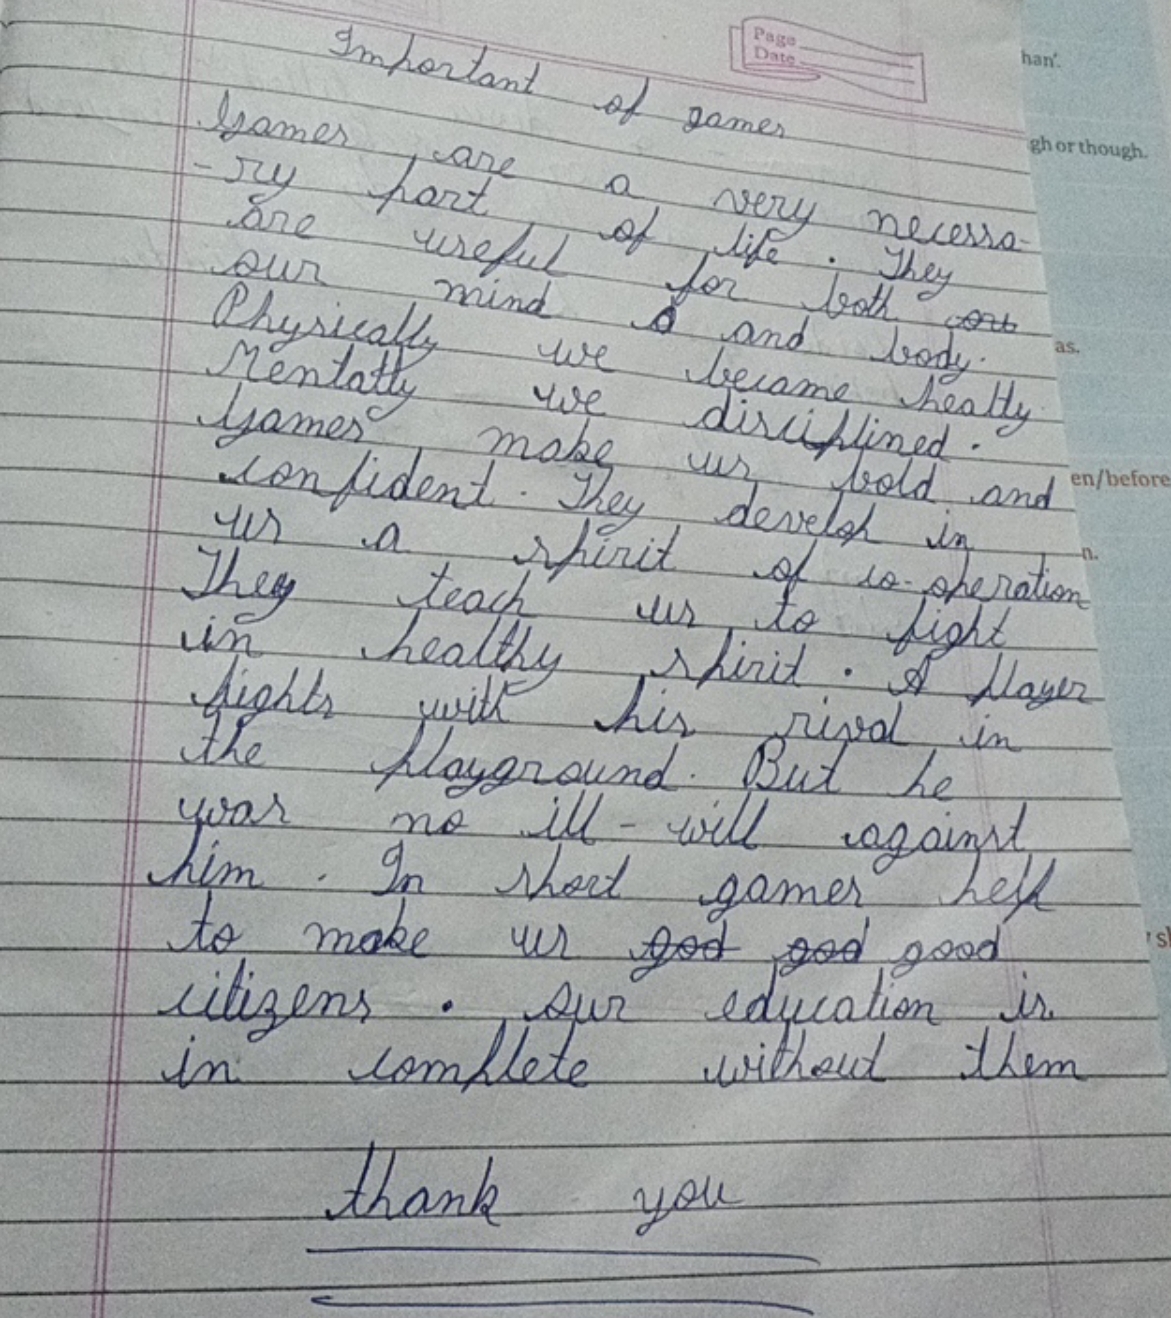 Page
Date
Important of games
Games are a very necessa-
-ry part of life. They
are useful for both
our mind and body.
Physically we became healty
Mentatly we disciplined.
Games make us bold and
confident. They develop in
us a spirit of co-operation
They teach us to fight
in healthy spirit. A player
fights with his rival in
the playground. But he
was no ill-will against
him. In short games help
to make us god god good
citizens. our education is
in complete without them
thank you
han'.
gh or though.
as.
en/before
n.